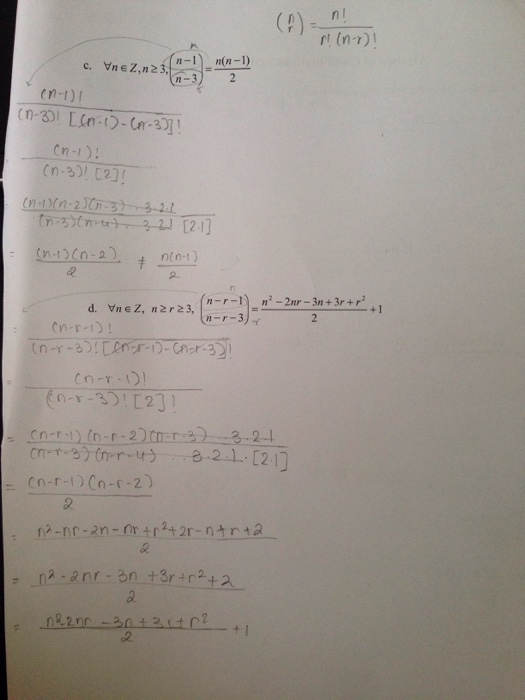 (n r) = n! / r! (n-r)!
n
c. ∀n ∈ Z, n ≥ 3, (n-1 n-3) = n(n-1) / 2
r
(n-1)! / (n-3)! [(n-1)-(n-3)]!
(n-1)! / (n-3)! [2]!
(n-1)(n-2)(n-3)...3.2.1 / (n-3)(n-4)...3.2.1 [2.1]
= (n-1)(n-2) / 2 ≠ n(n-1) / 2
n
d. ∀n ∈ Z, n ≥ r ≥ 3, (n-r-1 n-r-3) = n² - 2nr - 3n + 3r + r² / 2 + 1
r
= (n-r-1)! / (n-r-3)! [(n-r-1)-(n-r-3)]!
= (n-r-1)! / (n-r-3)! [2]!
= (n-r-1)(n-r-2)(n-r-3)...3.2.1 / (n-r-3)(n-r-4)...3.2.1.[2.1]
= (n-r-1)(n-r-2) / 2
= n²-nr-2n-nr+r²+2r-n+r+2 / 2
= n²-2nr-3n+3r+r²+2 / 2
= n²2nr-3n+3r+r² / 2 +1